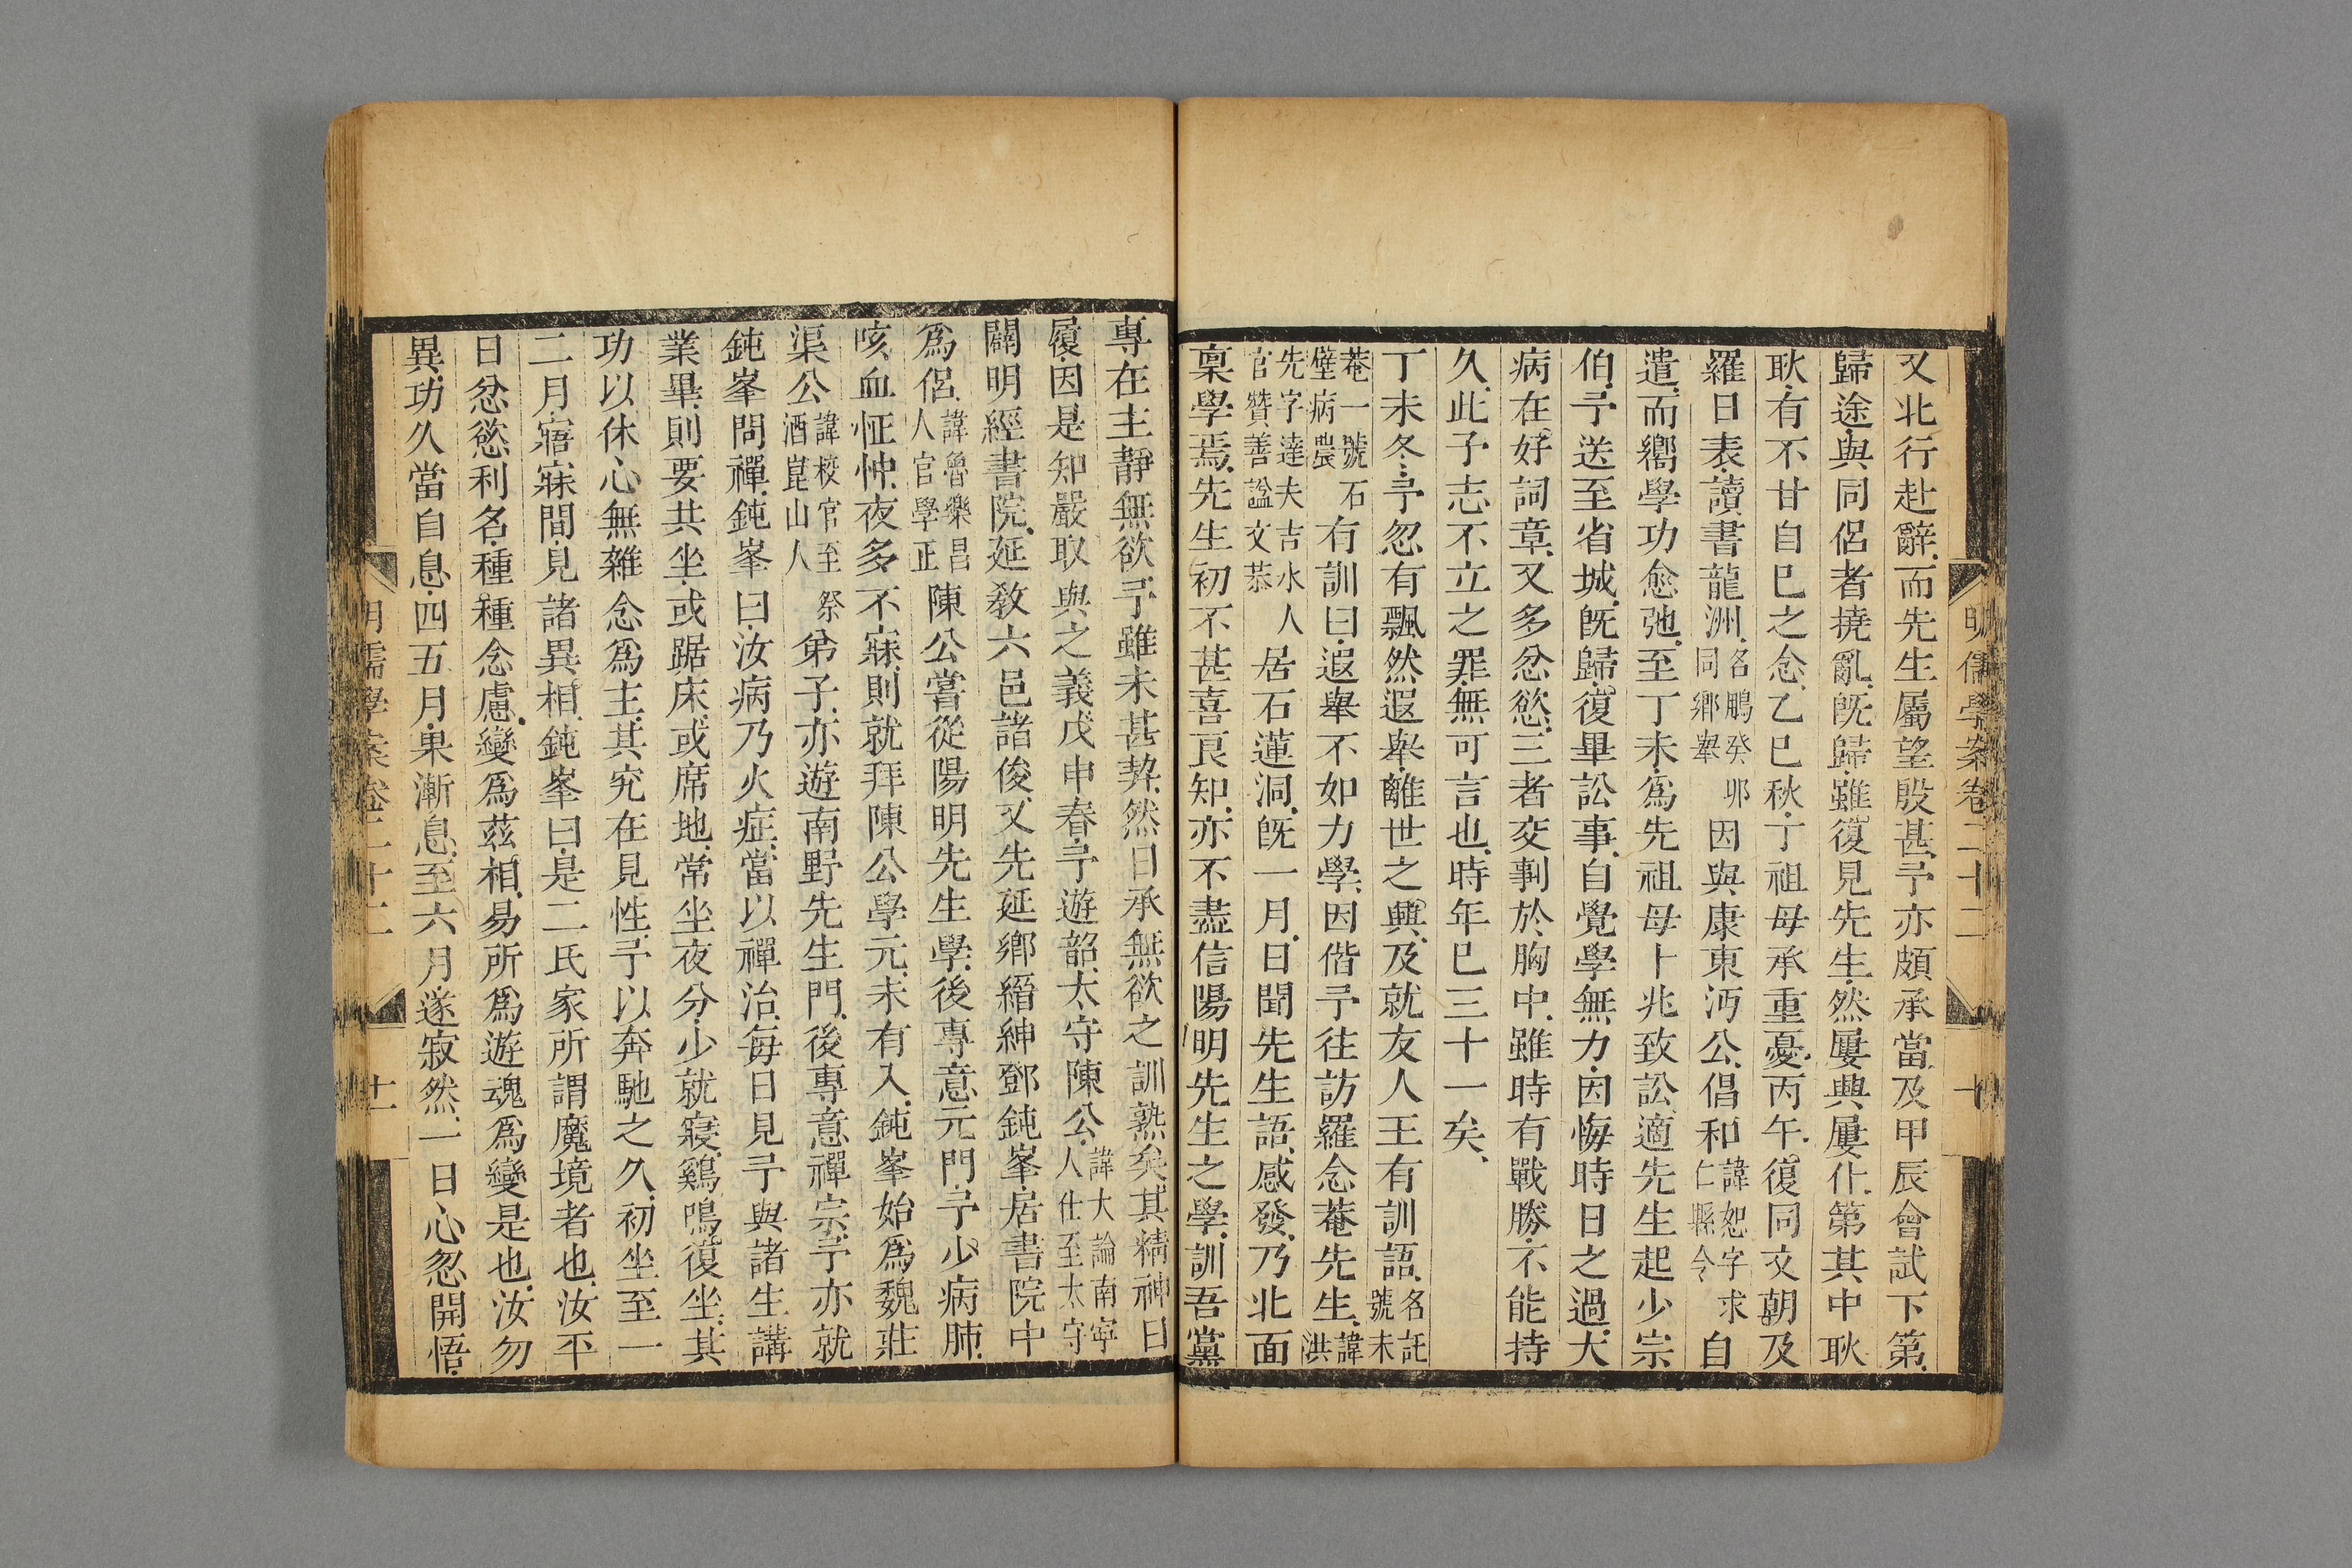 明儒學案卷二十二　十
又北行赴辭而先生屬望殷甚予亦頗承當及甲辰會試下第
歸途與同侶者撓亂旣歸雖復見先生然屢興屢仆第其中耿
耿有不甘自已之念乙巳秋丁祖母承重憂丙午復同交朝及
羅日表讀書龍洲名鵬癸卯同鄉舉因與康東沔公倡和諱恕字求仁縣令自
遣而嚮學功愈弛至丁未爲先祖母卜兆致訟適先生起少宗
伯予送至省城旣歸復畢訟事自覺學無力因悔時日之過大
病在好詞章又多忿慾三者交剚於胸中雖時有戰勝不能持
久此予志不立之罪無可言也時年已三十一矣
丁未冬予忽有飄然遐舉離世之興及就友人王有訓語名託號未
菴一號石壁病農有訓曰遐舉不如力學因偕予往訪羅念菴先生諱洪
先字達夫吉水人官贊善諡文恭居石蓮洞旣一月日聞先生語感發乃北面
稟學焉先生初不甚喜良知亦不盡信陽明先生之學訓吾黨
專在主靜無欲予雖未甚契然日承無欲之訓熟矣其精神日
履因是知嚴取與之義戊申春予遊韶太守陳公諱大論南寧人仕至太守
闢明經書院延敎六邑諸俊又先延鄉縉紳鄧鈍峯居書院中
爲侶諱魯樂昌人官學正陳公嘗從陽明先生學後專意元門予少病肺
咳血怔忡夜多不寐則就拜陳公學元未有入鈍峯始爲魏莊
渠公諱校官至祭酒崑山人弟子亦遊南野先生門後專意禪宗予亦就
鈍峯問禪鈍峯曰汝病乃火症當以禪治每日見予與諸生講
業畢則要共坐或踞床或席地常坐夜分少就寢鷄鳴復坐其
功以休心無雜念爲主其究在見性予以奔馳之久初坐至一
二月寤寐間見諸異相鈍峯曰是二氏家所謂魔境者也汝平
日忿慾利名種種念慮變爲茲相易所爲遊魂爲變是也汝勿
異功久當自息四五月果漸息至六月遂寂然一日心忽開悟
明儒學案卷二十二　十一